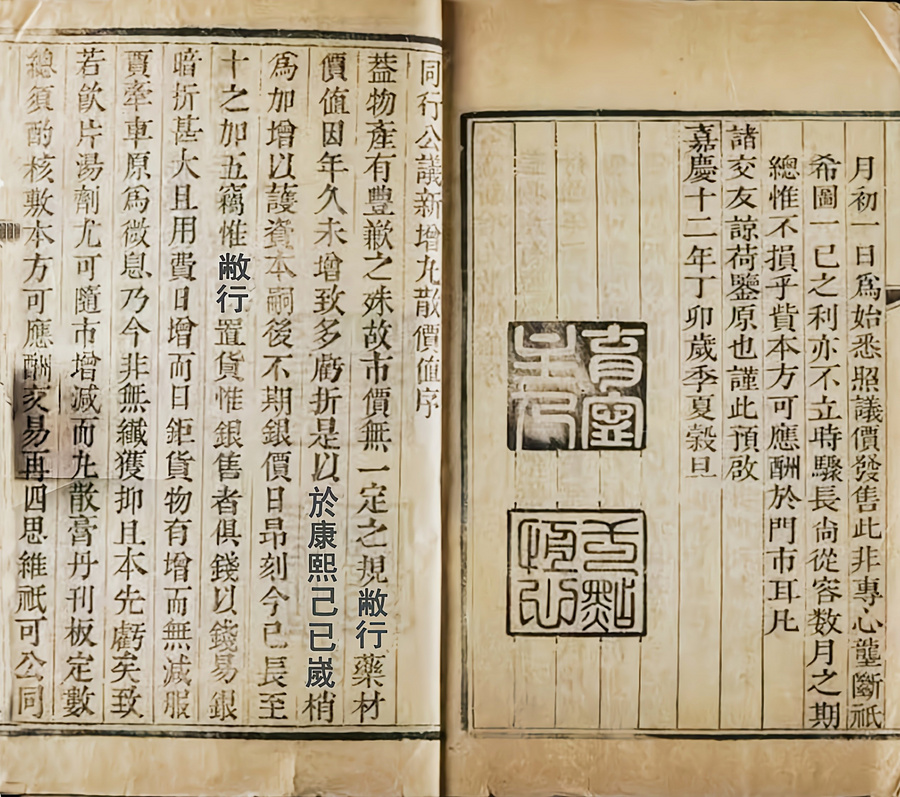 同行公議新增丸散價值序
葢物產有豐歉之殊故市價無一定之規敝行藥材
價值因年久未增致多虧折是以於康熙己巳嵗梢
爲加增以護資本嗣後不期銀價日昂刻今已長至
十之加五竊惟敝行置貨惟銀售者俱錢以錢易銀
暗折甚大且用費日增而日鉅貨物有增而無減服
賈牽車原爲微息乃今非無纖獲抑且本先虧矣致
若飲片湯劑尤可隨市增減而丸散膏丹刊板定數
總須酌核敷本方可應酬交易再四思維祇可公同
月初一日爲始悉照議價發售此非專心壟斷祇
希圖一已之利亦不立時驟長尙從容数月之期
總惟不損乎貲本方可應酬於門市耳凡
諸交友諒荷鑒原也謹此預啟
嘉慶十二年丁卯歲季夏榖旦